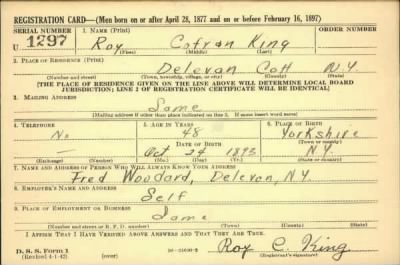 REGISTRATION CARD—(Men born on or after April 28, 1877 and on or before February 16, 1897)
SERIAL NUMBER 1. NAME (Print) ORDER NUMBER
U 1297 Roy Cofran King
(First) (Middle) (Last)
2. PLACE OF RESIDENCE (Print)
Delevan Catt N.Y.
(Number and street) (Town, township, village, or city) (County) (State)
[THE PLACE OF RESIDENCE GIVEN ON THE LINE ABOVE WILL DETERMINE LOCAL BOARD
JURISDICTION; LINE 2 OF REGISTRATION CERTIFICATE WILL BE IDENTICAL]
3. MAILING ADDRESS
Same
(Mailing address if other than place indicated on line 2. If same insert word same)
4. TELEPHONE 5. AGE IN YEARS 6. PLACE OF BIRTH
No 48 Yorkshire
DATE OF BIRTH (Town or county)
— Oct 24 1893 N.Y.
(Exchange) (Number) (Mo.) (Day) (Yr.) (State or country)
7. NAME AND ADDRESS OF PERSON WHO WILL ALWAYS KNOW YOUR ADDRESS
Fred Woodard, Delevan, N.Y.
8. EMPLOYER'S NAME AND ADDRESS
Self
9. PLACE OF EMPLOYMENT OR BUSINESS
Same
(Number and street or R. F. D. number) (Town) (County) (State)
I AFFIRM THAT I HAVE VERIFIED ABOVE ANSWERS AND THAT THEY ARE TRUE.
D. S. S. Form 1
(Revised 4-1-42) (over) Roy C. King
(Registrant's signature)